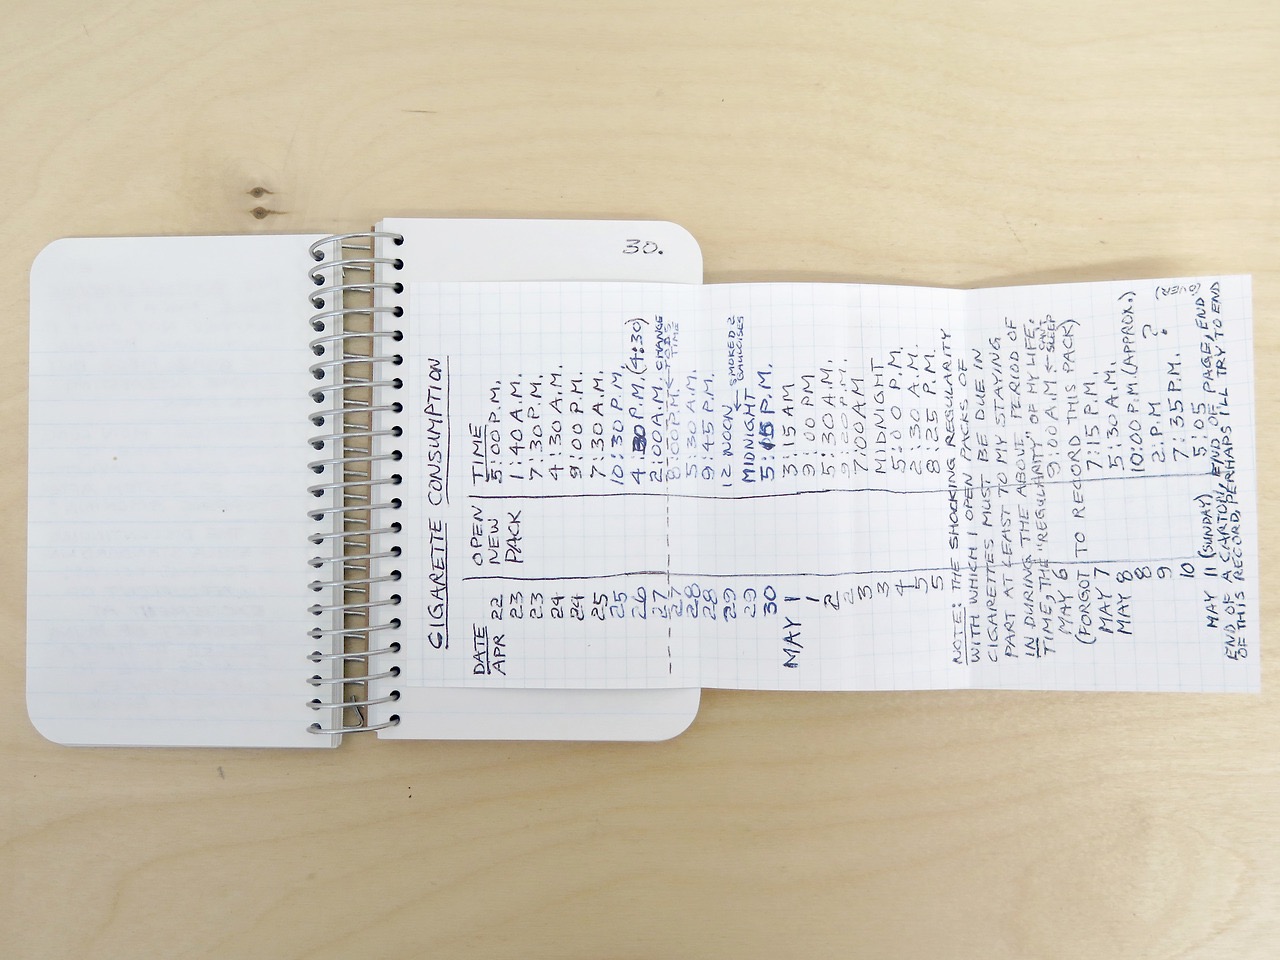 30.
CIGARETTE CONSUMPTION
DATE OPEN TIME
APR 22 NEW 5:00 P.M.
23 PACK 1:40 A.M.
23 7:30 P.M.
24 4:30 A.M.
24 9:00 P.M.
25 7:30 A.M.
25 10:30 P.M.
26 4:30 P.M. (4:30)
27 2:00 A.M. CHANGE
27 8:00 P.M. ← TO D.S. TIME
28 5:30 A.M.
28 9:45 P.M.
29 12 NOON SMOKED 2
29 MIDNIGHT ← GAULOISES
30 5:15 P.M.
MAY 1 3:15 AM
1 9:00 PM
2 5:30 A.M.
2 9:20 P.M.
3 7:00 AM
3 MIDNIGHT
4 5:00 P.M.
5 2:30 A.M.
5 8:25 P.M.
NOTE: THE SHOCKING REGULARITY
WITH WHICH I OPEN PACKS OF
CIGARETTES MUST BE DUE IN
PART AT LEAST TO MY STAYING
IN DURING THE ABOVE PERIOD OF
TIME, THE "REGULARITY" OF MY LIFE.
MAY 6 9:00 A.M ← CAN'T SLEEP
(FORGOT TO RECORD THIS PACK)
MAY 7 7:15 P.M.
MAY 8 5:30 A.M.
8 10:00 P.M. (APPROX.)
9 2 P.M ?
10 7:35 P.M.
MAY 11 (SUNDAY) 5:05
END OF A CARTON, END OF PAGE, END
OF THIS RECORD, PERHAPS I'LL TRY TO END
(OVER)